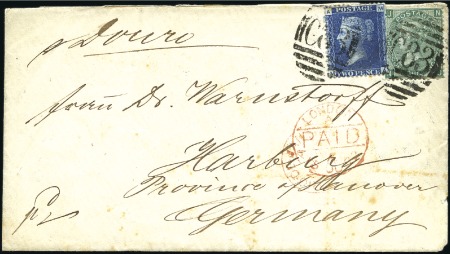 p Douro
Frau Dr. Warnstorff
Harburg
Province of Hanover
Germany
TWO PENCE
C83
LONDON
PAID